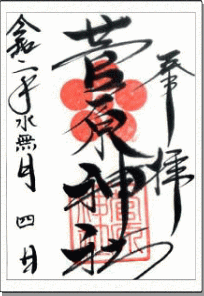 奉拝
菅原神社
令和二年水無月四日